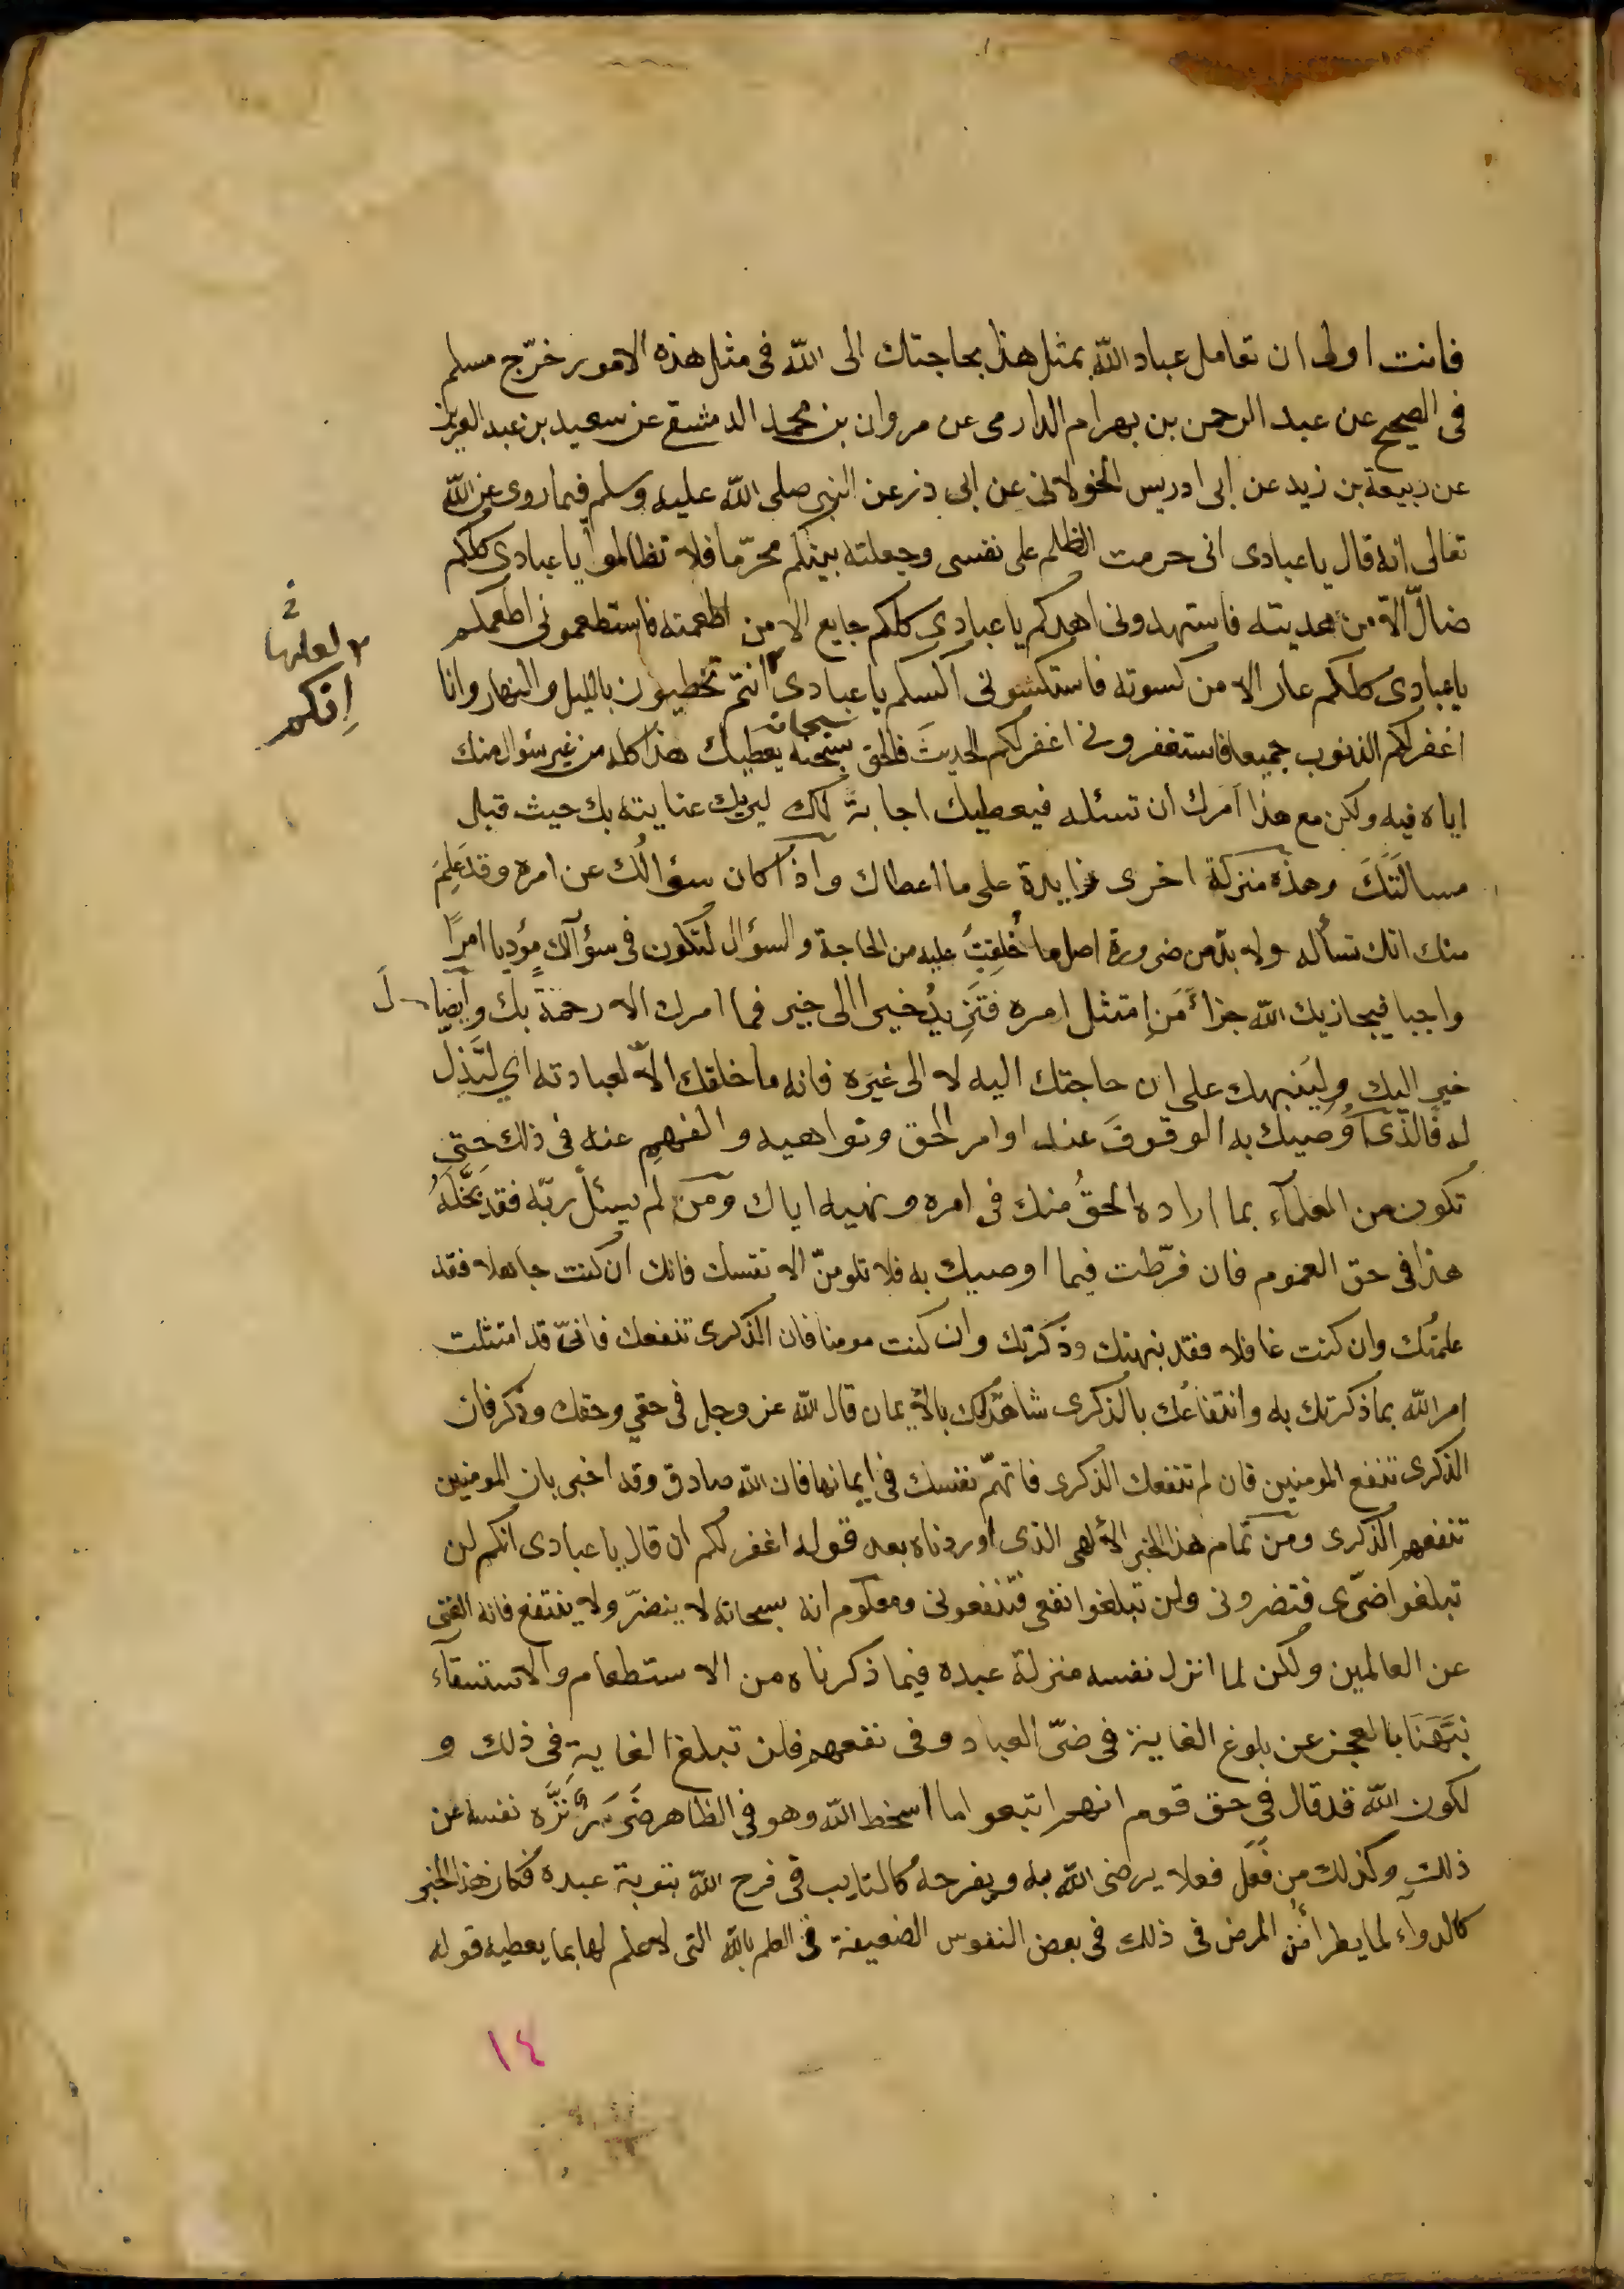 فانت اولى ان تعامل عباد الله بمثل هذا بحاجتك الى الله فى مثل هذه الامور خرّج مسلم
فى الصحيح عن عبد الرحمن بن بهرام الدارمى عن مروان بن محمد الدمشقى عن سعيد بن عبد العزيز
عن ربيعة بن زيد عن ابى ادريس الخولانى عن ابى ذر عن النبى صلى الله عليه وسلم فيما روى عن الله
تعالى انه قال يا عبادى انى حرمت الظلم على نفسى وجعلته بينكم محرّما فلا تظالموا يا عبادى كلكم
ضالّ الا من هديته فاستهدونى اهدكم يا عبادى كلكم جايع الا من اطعمته فاستطعمونى اطعمكم
يا عبادى كلكم عار الا من كسوته فاستكسونى اكسكم يا عبادى انتم تخطيون بالليل والنهار وانا
اغفر لكم الذنوب جميعا فاستغفرونى اغفر لكم الحديث فالحق سبحانه يعطيك هذا كله من غير سؤال منك
اياه فيه ولكن مع هذا امرك ان تسئله فيعطيك اجابة لك ليريك عنايته بك حيث قبل
مسالتَكَ وهذه منزلة اخرى زايدة على ما اعطاك واذا كان سؤالُك عن امره وقد عَلِمَ
منك انك تسأله ولا بد من ضرورة اصل ما خُلِقتَ عليه من الحاجة والسؤال لتكون فى سؤالك مؤديا امرًا
واجبا فيجازيك الله جزاءَ مَن امتثل امره فتزيدُ خيرا الى خير فما امرك الا رحمة بك وايصال
خير اليك ولينبهك على ان حاجتك اليه لا الى غيره فانه ما خلقك الا لعبادته اي لتذِلّ
له فالذى اُوصيك به الوقوفَ عند اوامر الحق ونواهيه والفهم عنه فى ذلك حتى
تكون من العلمآء بما اراده الحقُ منك فى امره ونهيه اياك ومن لم يسئل ربّه فقد بخّلهُ
هذا فى حق العموم فان فرّطت فيما اوصيك به فلا تلومنّ الا نفسك فانك ان كنت جاهلا فقد
علمتُك وان كنت غافلا فقد نبهتك وذكّرتك وان كنت مومنا فان الذكرى تنفعك فانىّ قد امتثلت
امر الله بما ذكرتك به وانتفاعُك بالذكرى شاهد لك بالايمان قال الله عز وجل فى حقي وحقك وذكر فان
الذكرى تنفع المومنين فان لم تنفعك الذكرى فاتهمّ نفسك فى ايمانها فان الله صادق وقد اخبر بان المومنين
تنفعهم الذكرى ومن تمام هذا الخبر الالهى الذى اوردناه بعد قوله اغفر لكم ان قال يا عبادى انكم لن
تبلغوا ضرّى فتضرونى ولن تبلغوا نفعى فتنفعونى ومعلوم انه سبحانه لا ينضرّ ولا ينتفع فانه الغنى
عن العالمين ولكن لما انزل نفسه منزلة عبده فيما ذكرناه من الاستطعام والاستسقآء
نبّهَنا بالعجز عن بلوغ الغاية فى ضرّ العباد وفى نفعهم فلن تبلغ الغاية فى ذلك و
لكون الله قد قال فى حق قوم انهم اتبعوا ما اسخط الله وهو فى الظاهر ضرر نَزَّه نفسه عن
ذلك وكذلك من فعَل فعلا يرضى الله به ويفرحه كالتايب فى فرح الله بتوبة عبده فكان هذا الخبر
كالدوآء لما يطرا من المرض فى ذلك فى بعض النفوس الضعيفة فى العلم بالله التى لا علم لها بما يعطيه قوله
لعلها
اِنكم
١٤